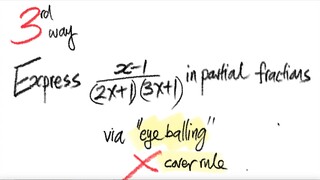 3rd way
Express x-1/(2x+1)(3x+1) in partial fractions
via "eye balling"
✗ cover rule.